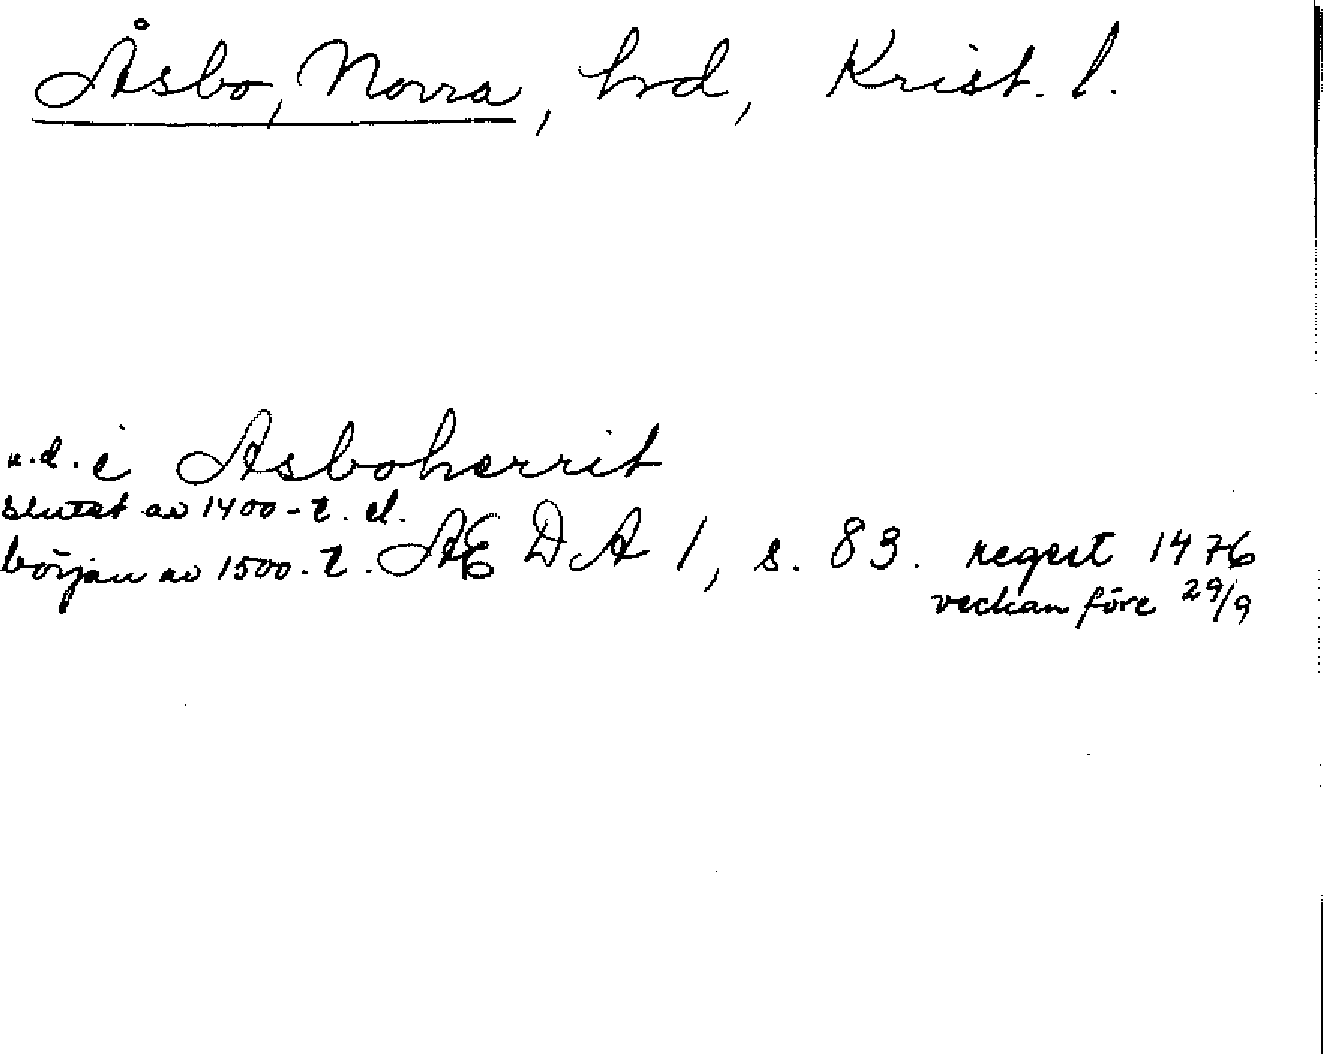 Åsbo, Norra, hrd, Krist. l.
u.d. i Asboherrit
slutet av 1400-t. el.
början av 1500-t. ÆDA 1, s. 83. regest 1476
veckan före 29/9